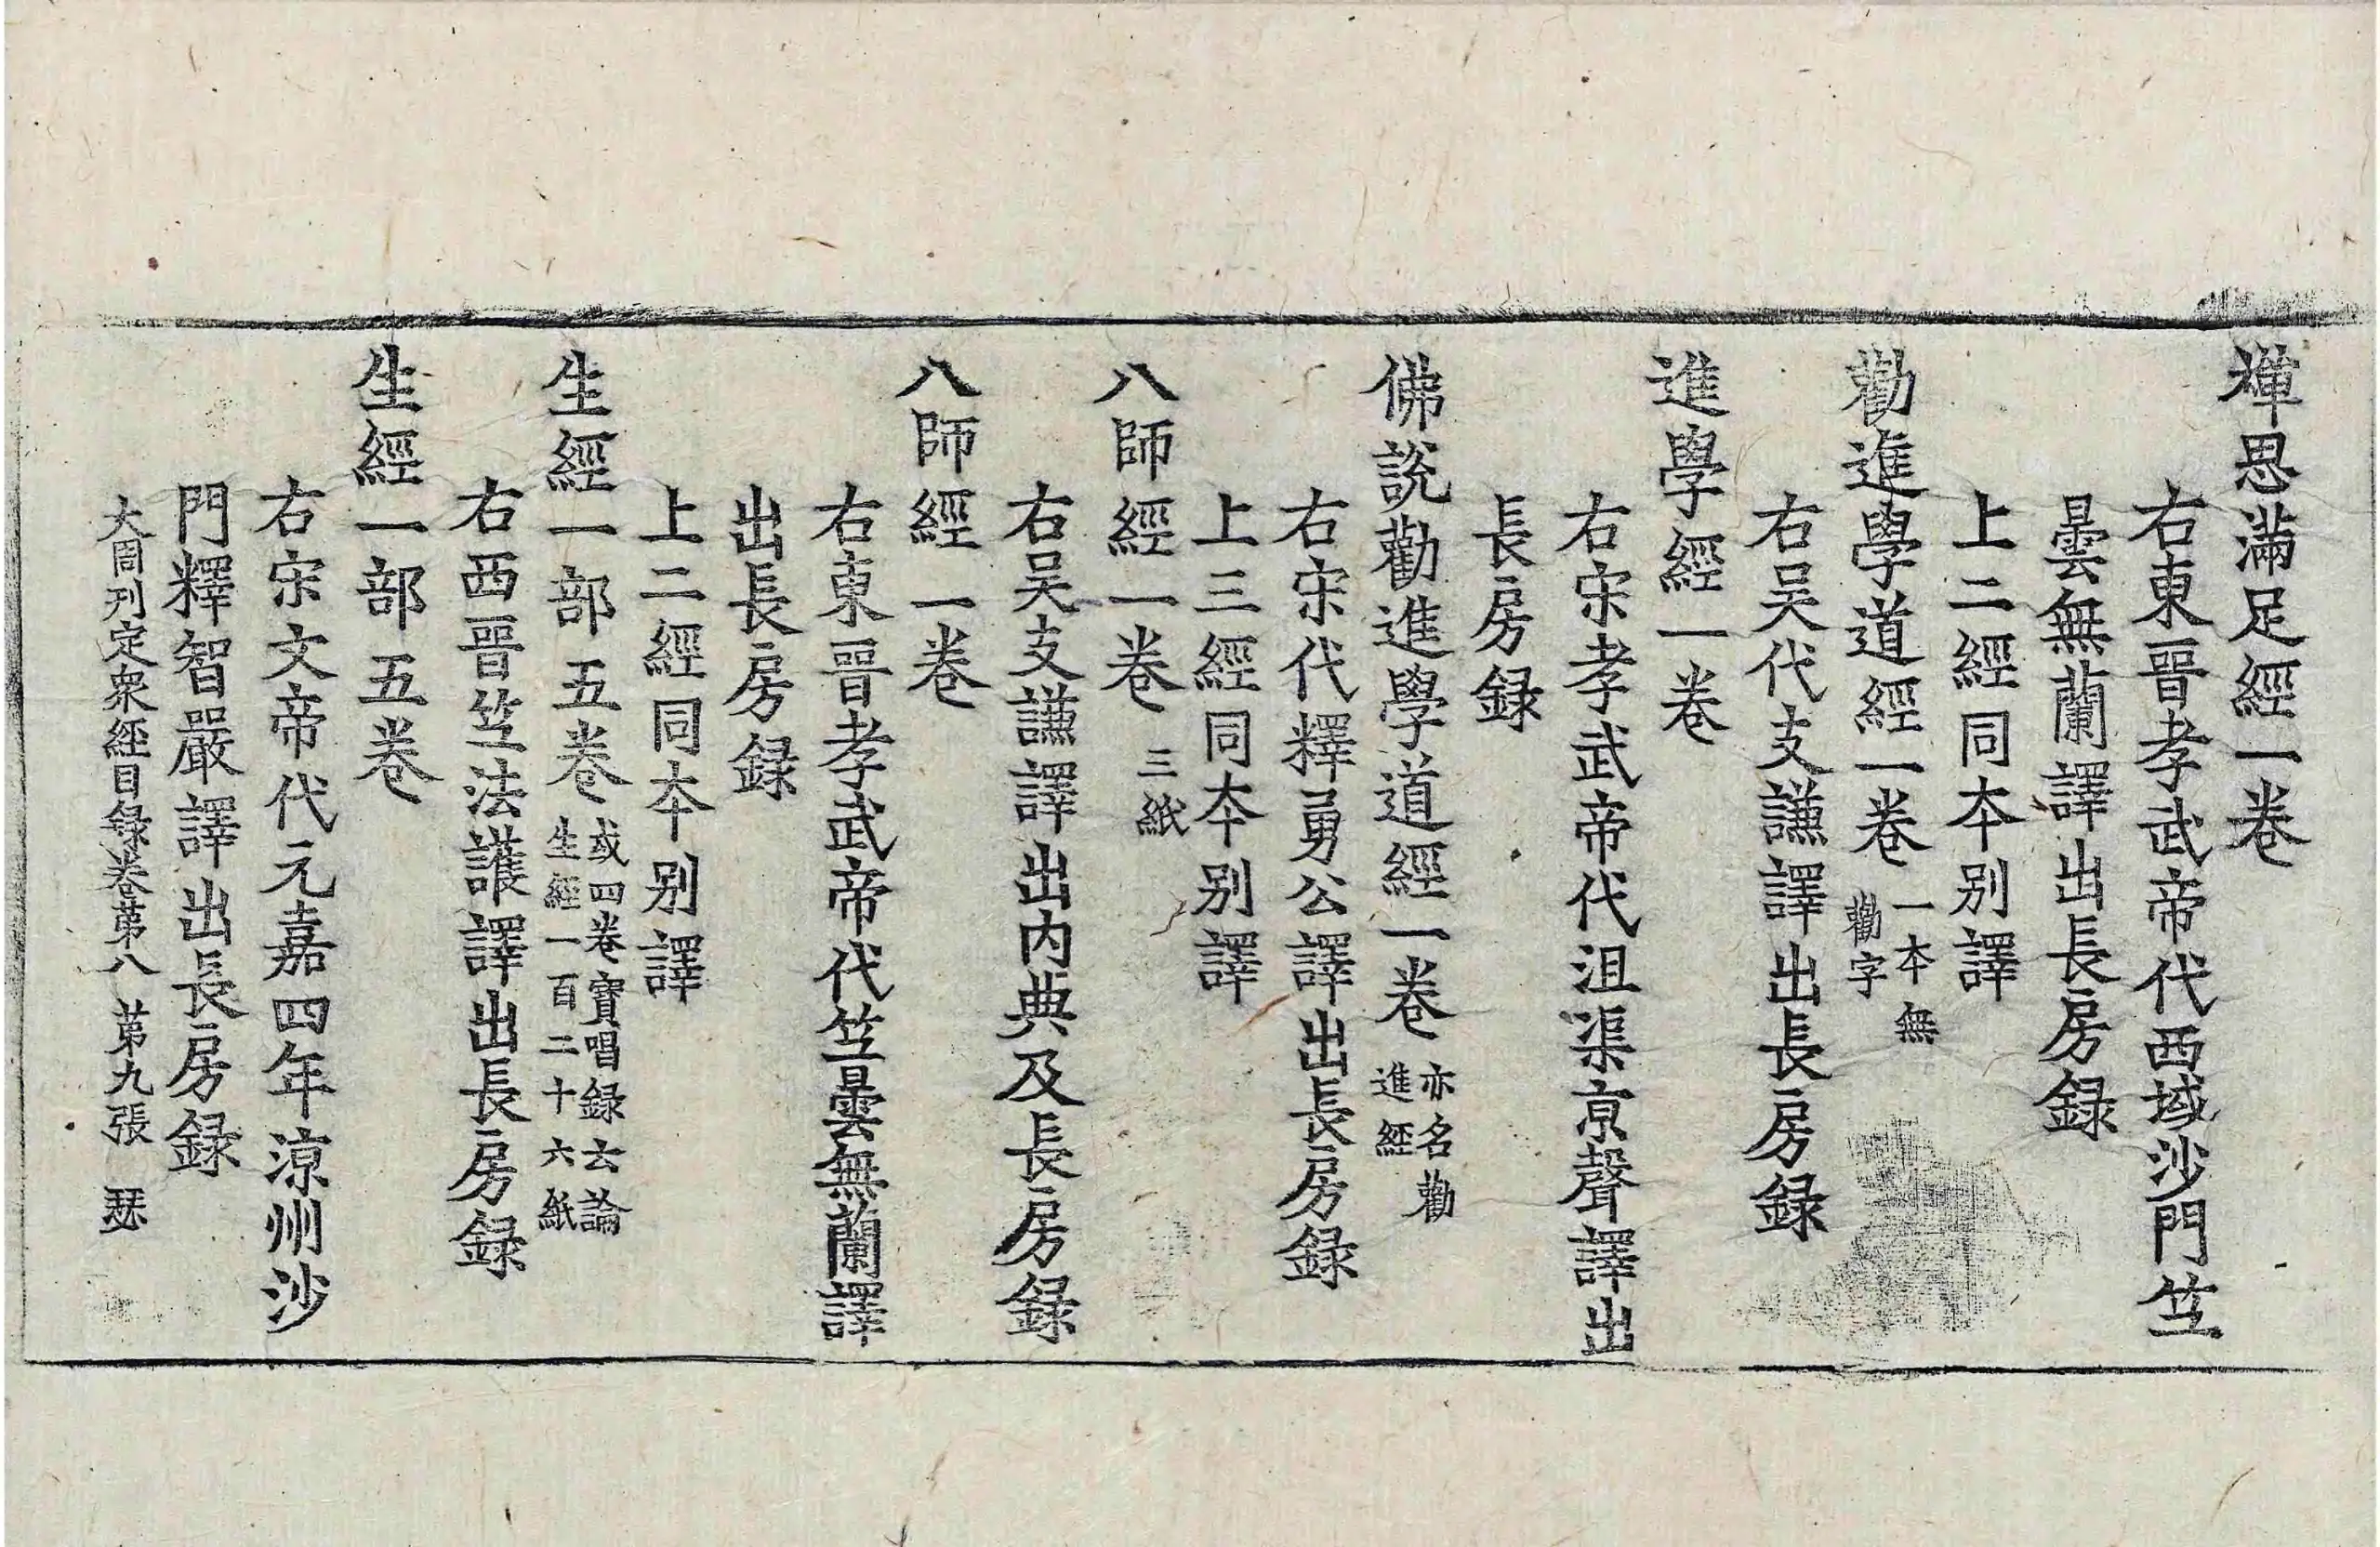 禪思滿足經一卷
右東晉孝武帝代西域沙門竺
曇無蘭譯出長房録
上二經同夲别譯
勸進學道經一卷 一夲無勸字
右吴代支謙譯出長房録
進學經一卷
右宋孝武帝代沮渠京聲譯出
長房録
佛說勸進學道經一卷 亦名勸進經
右宋代釋勇公譯出長房録
上三經同夲别譯
八師經一卷 三紙
右吴支謙譯出内典及長房録
八師經一卷
右東晉孝武帝代竺曇無蘭譯
出長房録
上二經同夲别譯
生經一部五卷 或四卷寶唱録云論生經一百二十六紙
右西晉竺法護譯出長房録
生經一部五卷
右宋文帝代元嘉四年涼州沙
門釋智嚴譯出長房録
大周刋定衆經目録卷苐八 苐九張 瑟